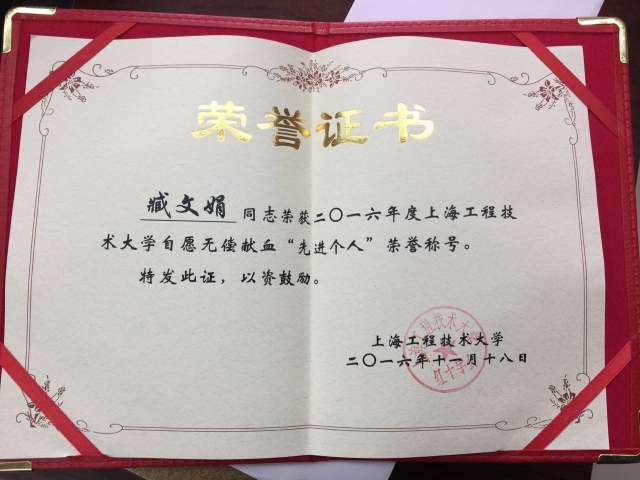 荣誉证书
臧文娟 同志荣获二〇一六年度上海工程技
术大学自愿无偿献血“先进个人”荣誉称号。
特发此证，以资鼓励。
上海工程技术大学
二〇一六年十一月十八日
红十字